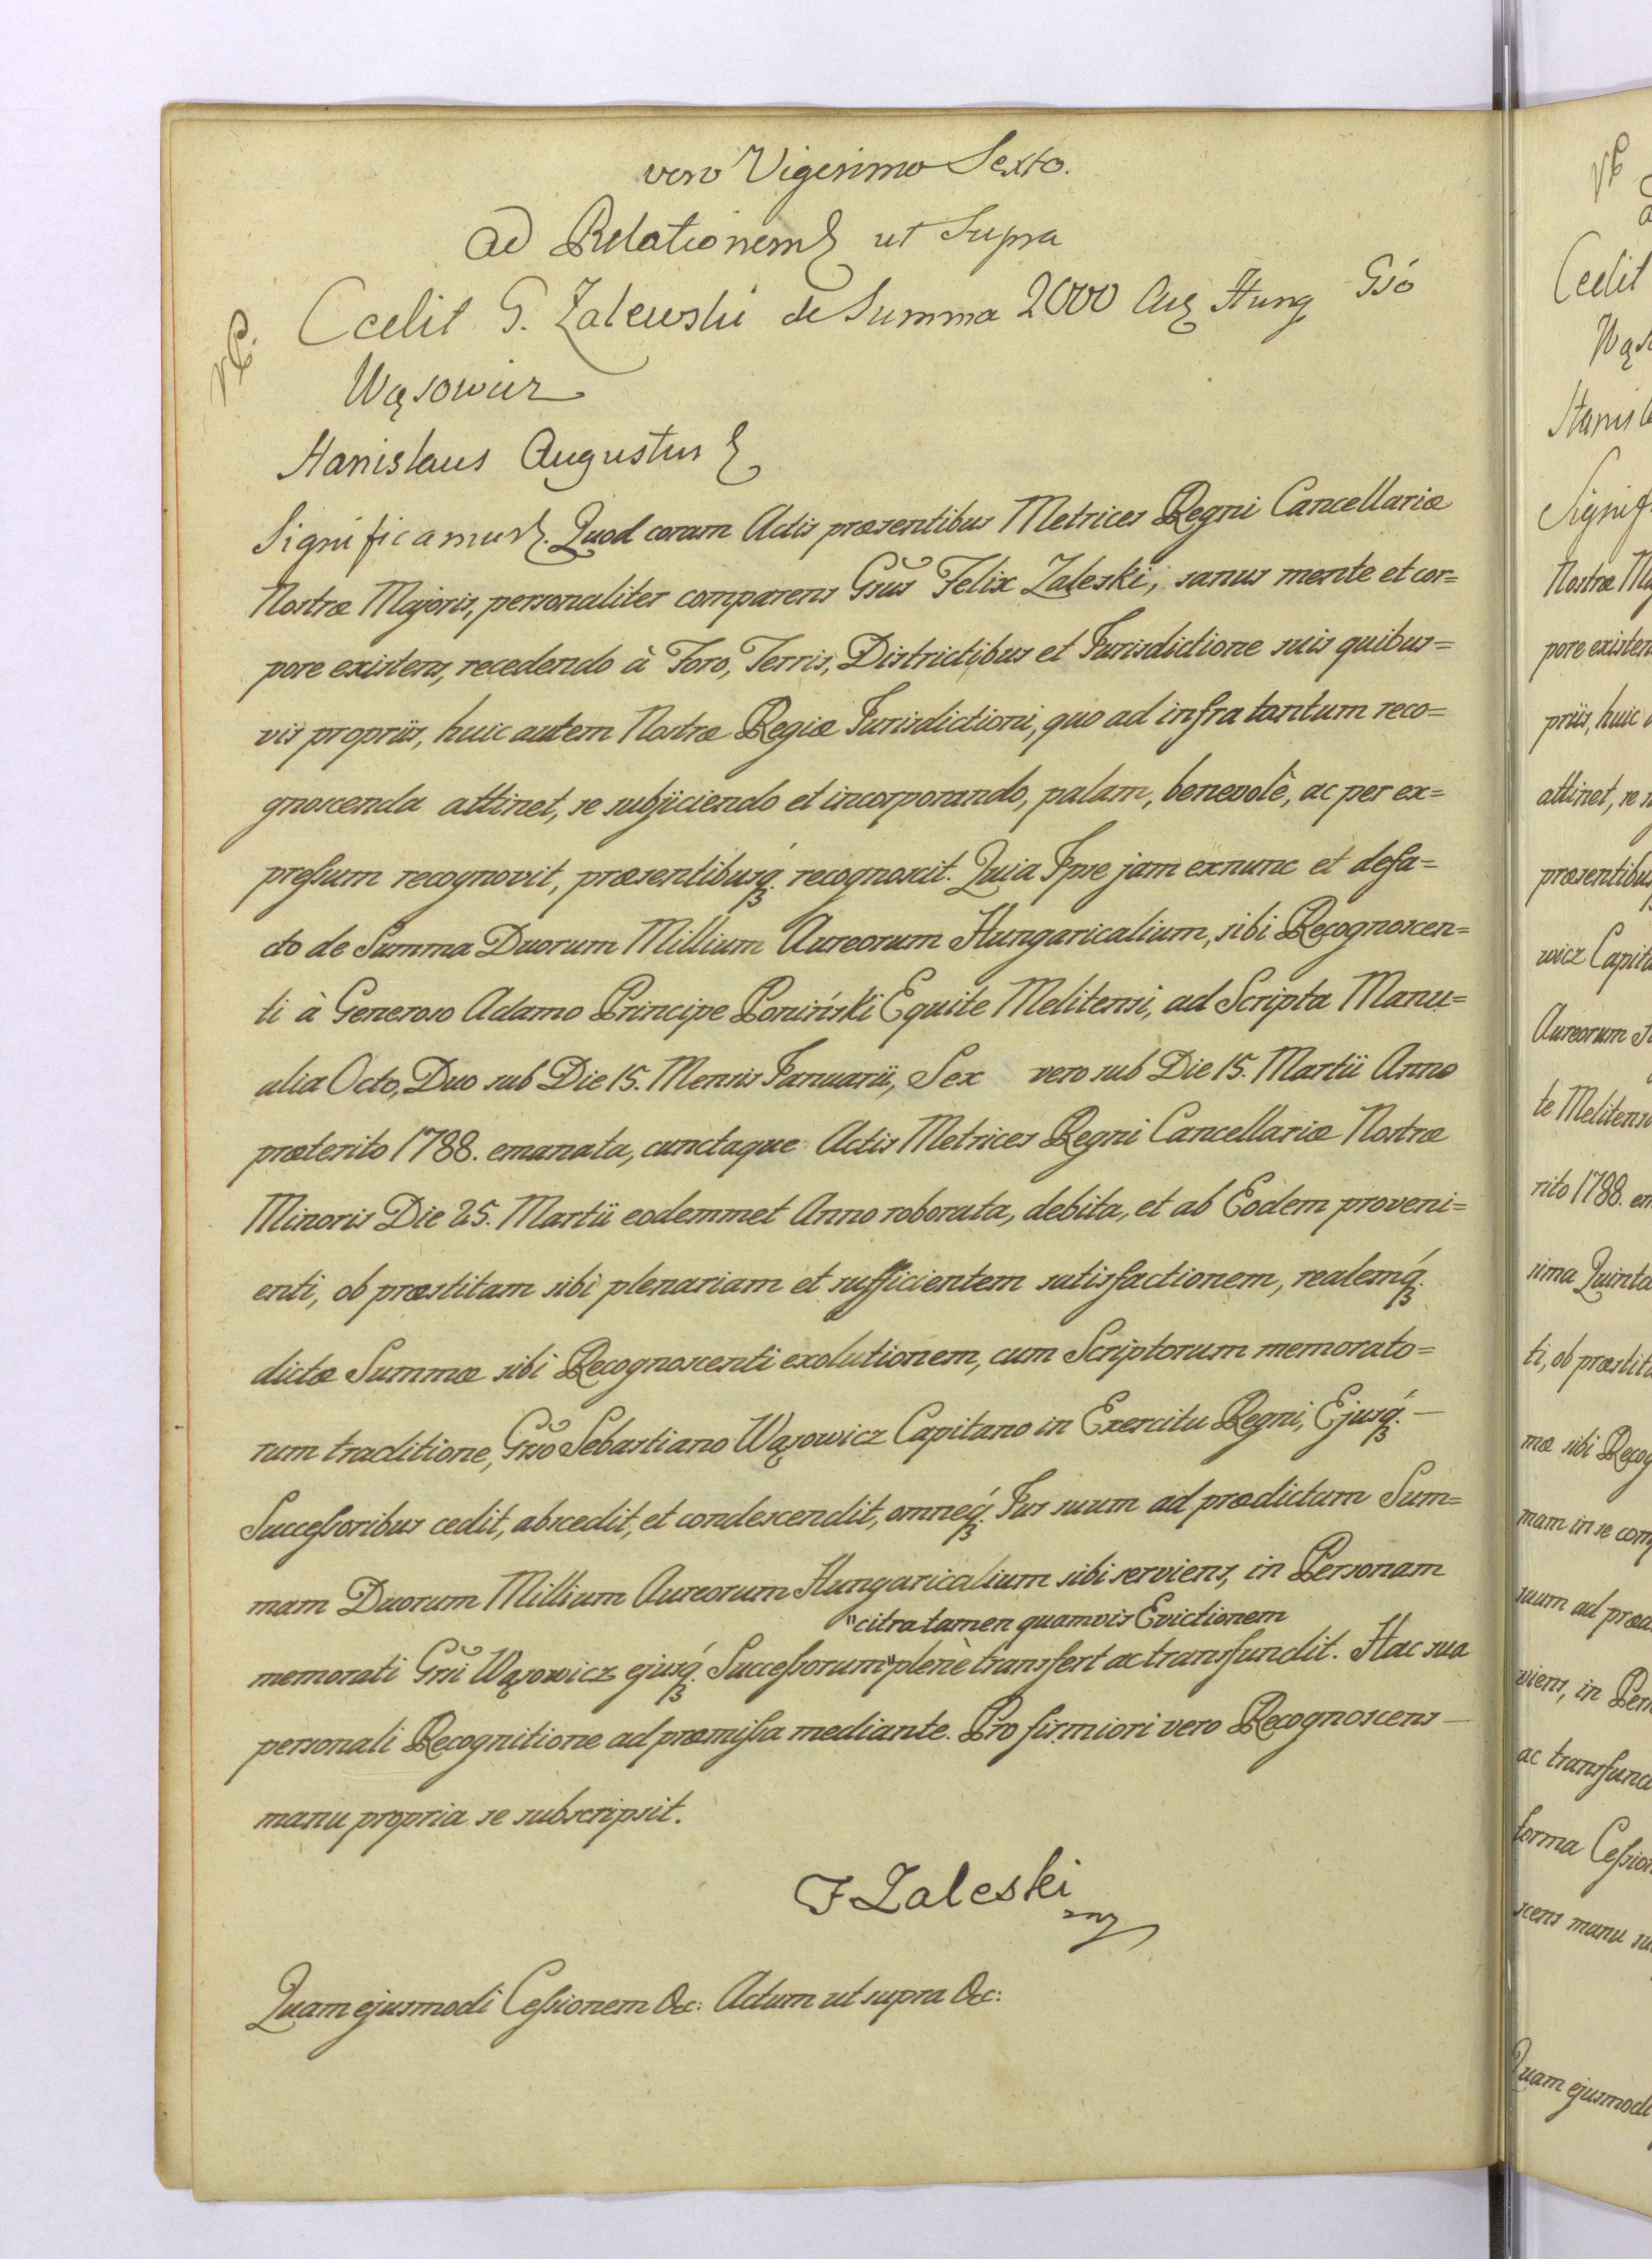 vero Vigesimo Sexto.
Ad Relationem ut Supra
Cedit G. Zalewski de Summa 2000 Aur Hung Gsó
Wąsowicz
Stanislaus Augustus
Significamus. Quod coram Actis præsentibus Metrices Regni Cancellariæ
Nostræ Majoris, personaliter comparens Gsus Felix Zaleski, sanus mente et cor=
pore existens, recedendo à Foro, Terris, Districtibus et Jurisdictione suis quibus=
vis propriis, huic autem Nostræ Regiæ Jurisdictioni, quo ad infra tantum reco=
gnoscenda attinet, se subjiciendo et incorporando, palam, benevolè, ac per ex=
pressum recognovit, præsentibusq. recognoscit. Quia Ipse jam exnunc et defa=
cto de Summa Duorum Millium Aureorum Hungaricalium, sibi Recognoscen=
ti à Generoso Adamo Principe Poniński Equite Melitensi, ad Scripta Manu=
alia Octo, Duo sub Die 15. Mensis Januarii, Sex vero sub Die 15. Martii Anno
præterito 1788. emanata, cunctaque Actis Metrices Regni Cancellariæ Nostræ
Minoris Die 25. Martii eodemmet Anno roborata, debita, et ab Eodem proveni=
enti, ob præstitam sibi plenariam et sufficientem satisfactionem, realemq.
dictæ Summæ sibi Recognoscenti exolutionem, cum Scriptorum memorato=
rum traditione, Gnso Sebastiano Wąsowicz Capitano in Exercitu Regni, Ejusq. —
Successoribus cedit, abscedit, et condescendit, omneq. Jus suum ad prædictam Sum=
mam Duorum Millium Aureorum Hungaricalium sibi serviens, in Personam
"citra tamen quamvis Evictionem
memorati Gnsi Wąsowicz ejusq. Successorum "plenè transfert ac transfundit. Hac sua
personali Recognitione ad præmissa mediante. Pro firmiori vero Recognoscens —
manu propria se subscripsit.
F Zaleski
mp
Quam ejusmodi Cessionem &c: Actum ut supra &c: